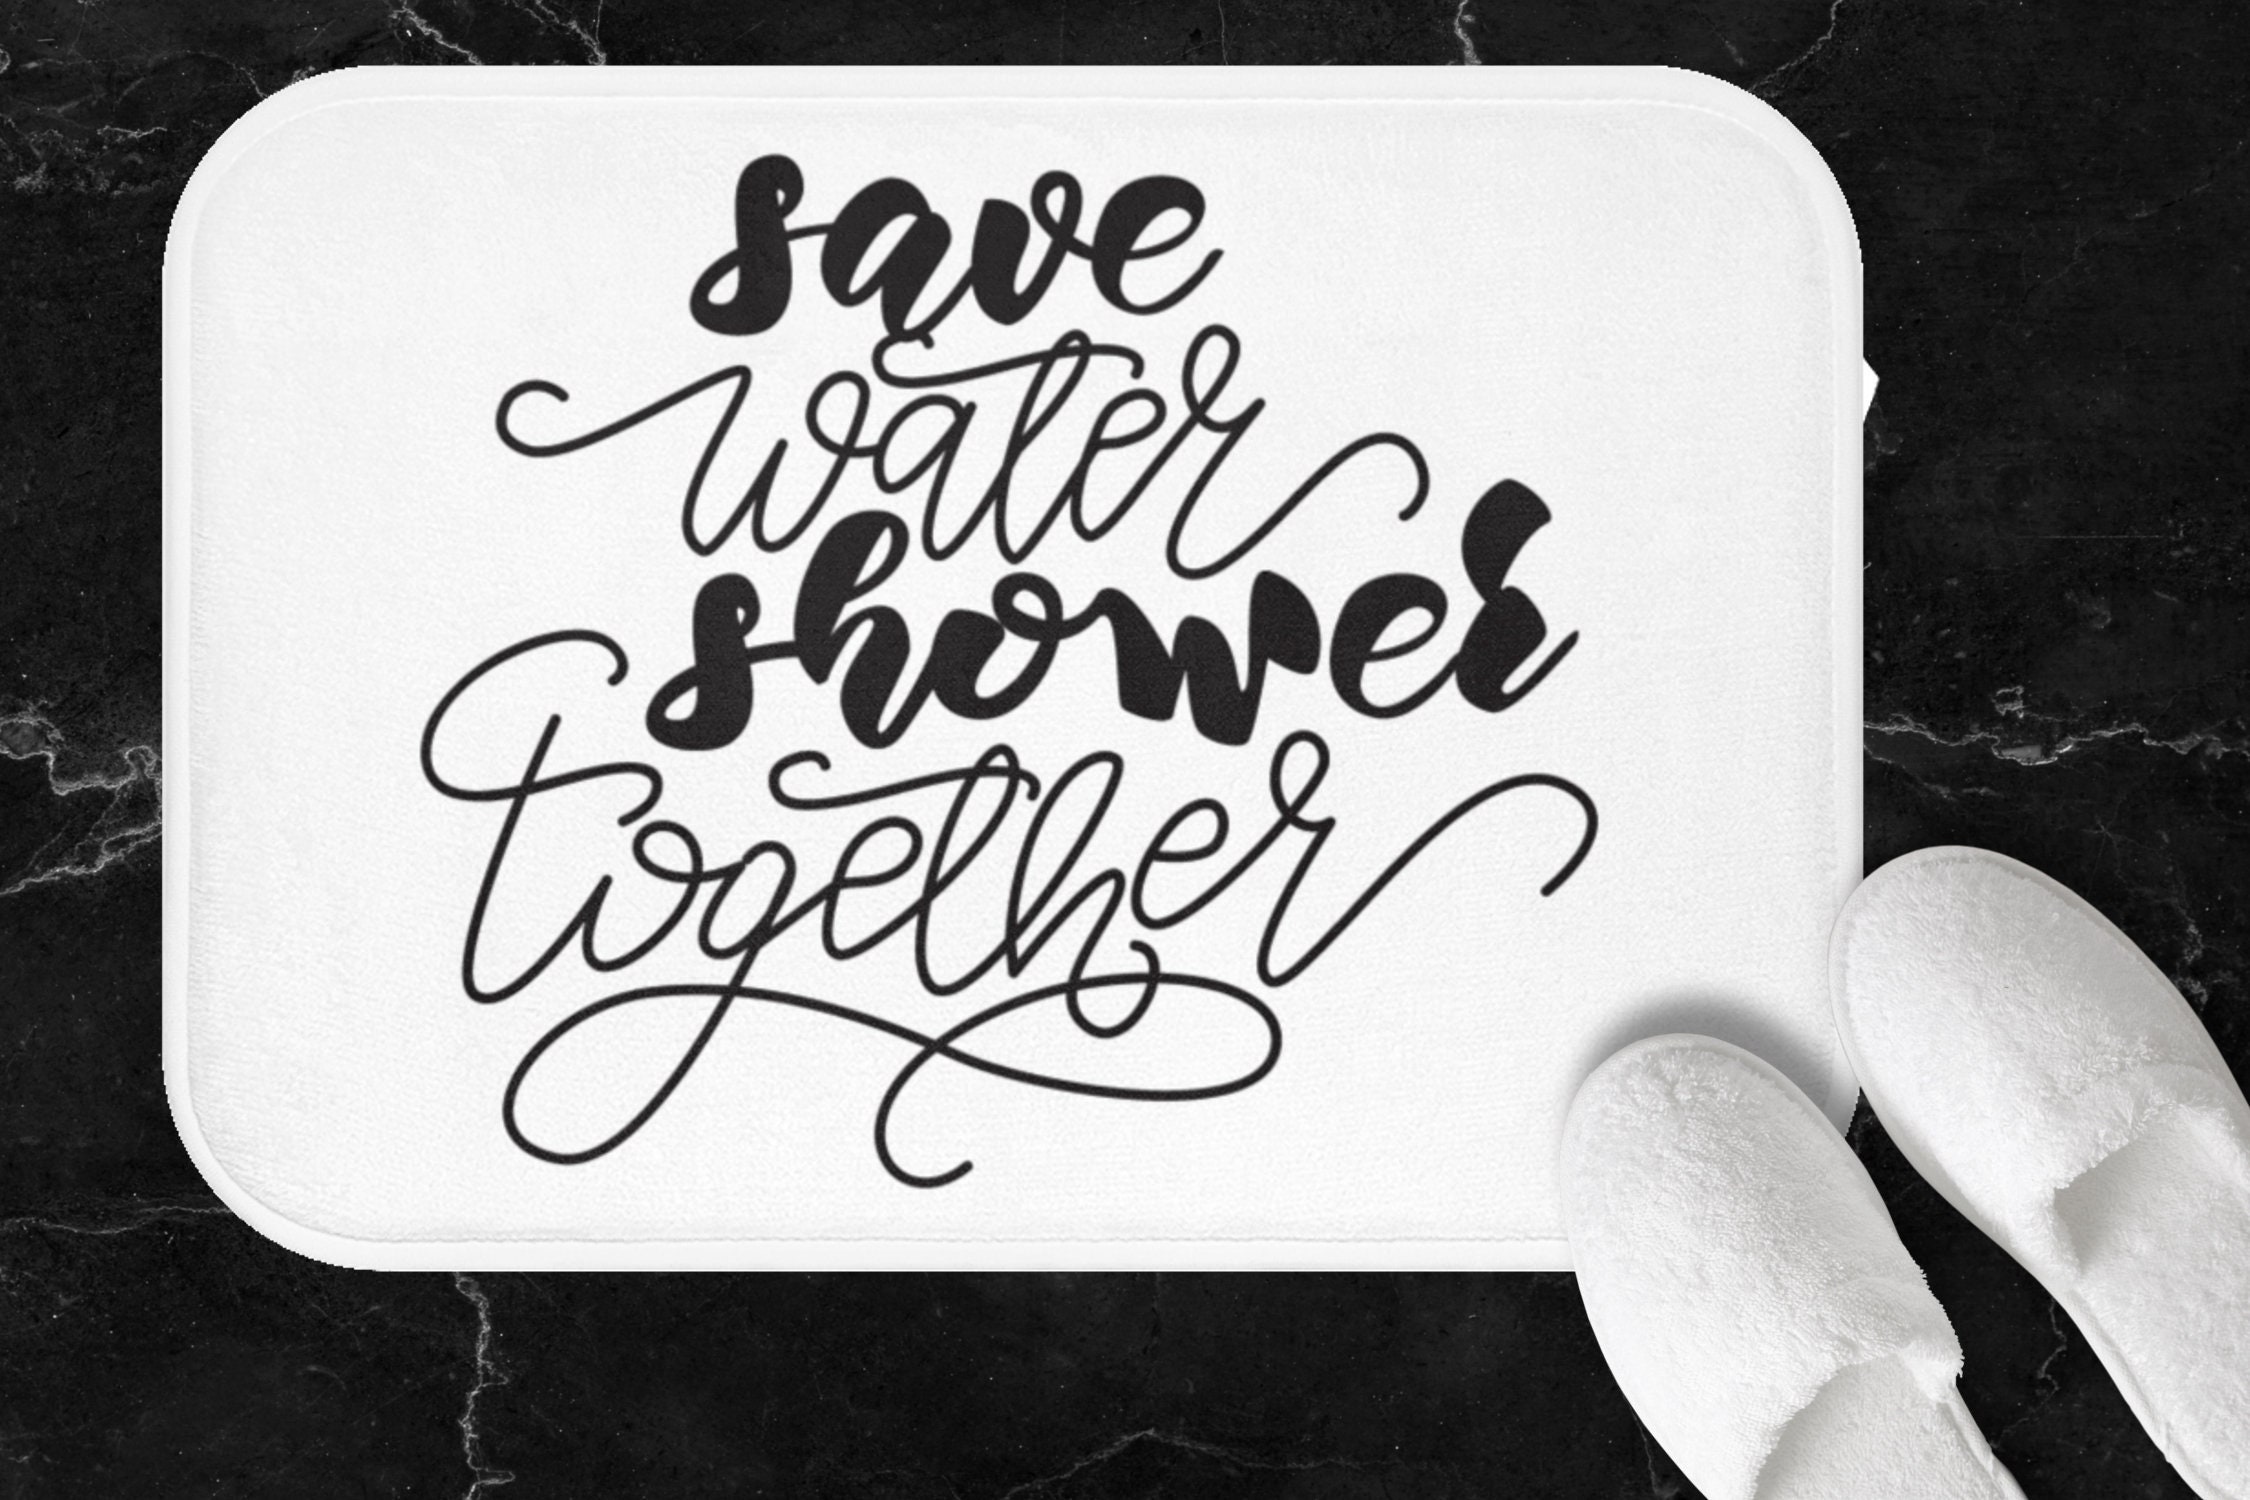 save
water
shower
together